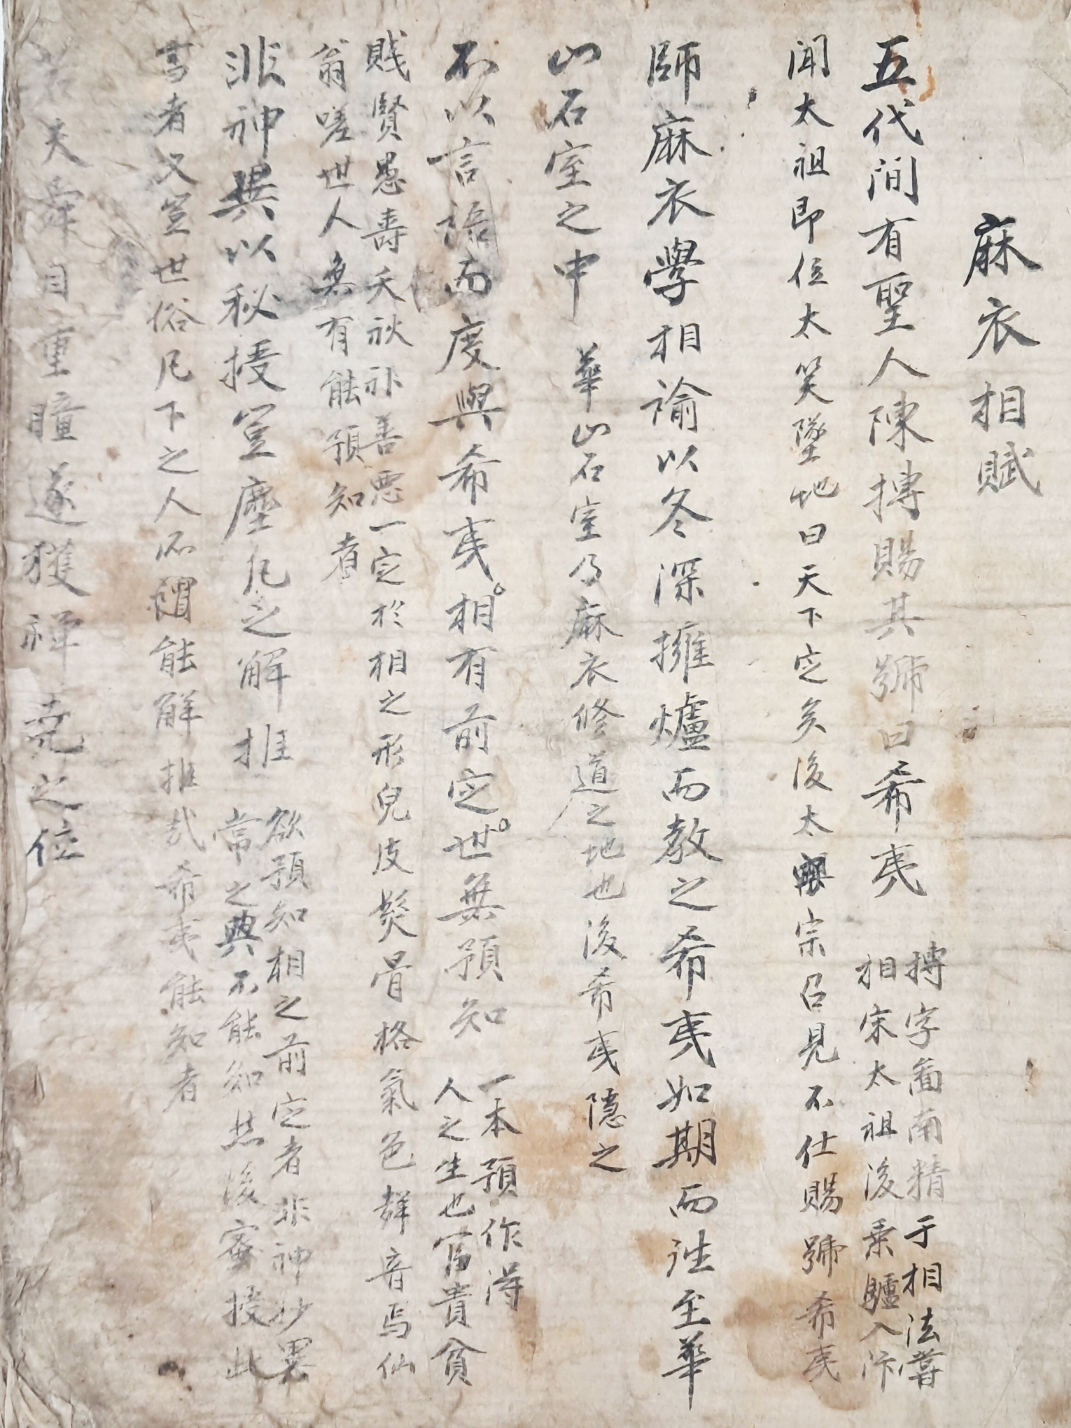 麻衣相賦
五代間有聖人陳摶賜其號曰希夷
摶字圖南精于相法嘗
相宋太祖後乘驢入汴
聞太祖即位大笑墜地曰天下定矣後太宗召見不仕賜號希夷
師麻衣學相諭以冬深擁爐而教之希夷如期而往至華
山石室之中
華山石室乃麻衣修道之地也後希夷隱之
不以言語而度與希夷相有前定世無預知
一本預作得
人之生也富貴貧
賤賢愚壽夭禍福善惡一定於相之形皃皮髮骨格氣色聲音焉仙
翁嗟世人無有能預知者
非神異以秘授豈塵凡之解推
欲預知相之前定者非神妙異
常之典不能知然後密授此
書者又豈世俗凡下之人所謂能解推哉希夷能知者
若夫舜目重瞳遂獲禪堯之位